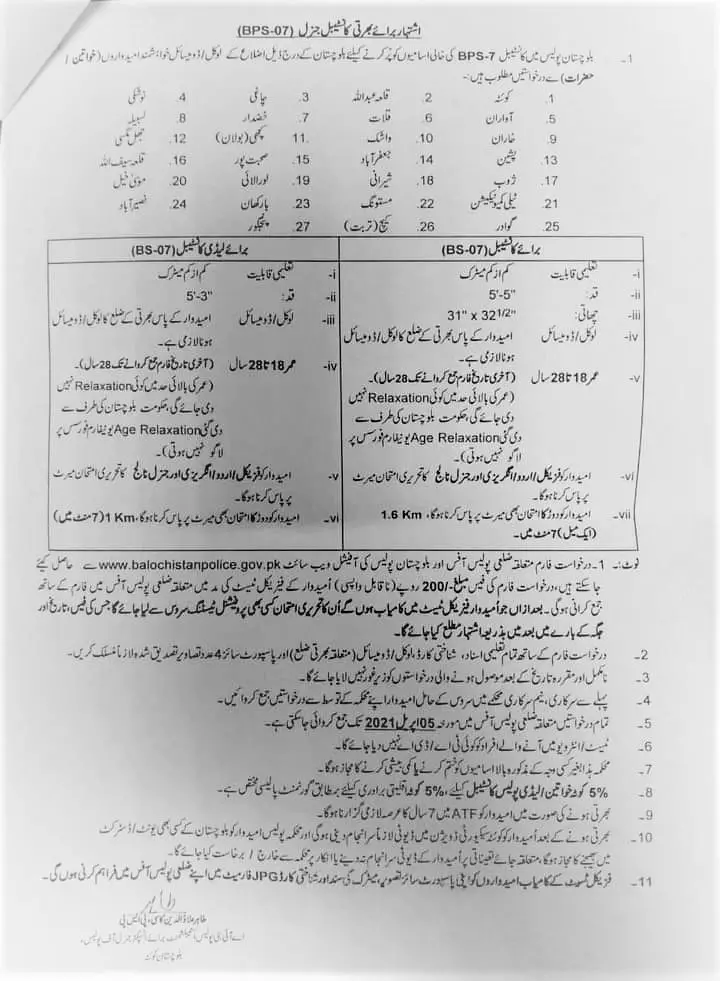 اشتہار برائے بھرتی کانسٹیبل جنرل (BPS-07)
1- بلوچستان پولیس میں کانسٹیبل BPS-7 کی خالی اسامیوں کو پُر کرنے کیلئے بلوچستان کے درج ذیل اضلاع کے لوکل/ڈومیسائل خواہشمند امیدواروں (خواتین /
حضرات) سے درخواستیں مطلوب ہیں:-
1. کوئٹہ 2. قلعہ عبداللہ 3. چاغی 4. نوشکی
5. آواران 6. قلات 7. خضدار 8. لسبیلہ
9. خاران 10. واشک 11. کچھی (بولان) 12. جھل مگسی
13. پشین 14. جعفرآباد 15. صحبت پور 16. قلعہ سیف اللہ
17. ژوب 18. شیرانی 19. لورالائی 20. موسیٰ خیل
21. ٹیلی کمیونیکیشن 22. مستونگ 23. بارکھان 24. نصیرآباد
25. گوادر 26. کیچ (تربت) 27. پنجگور
برائے کانسٹیبل (BS-07)
i- تعلیمی قابلیت کم از کم میٹرک
ii- قد: 5'-5"
iii- چھاتی: 31" x 32 1/2"
iv- لوکل/ڈومیسائل امیدوار کے پاس بھرتی کے ضلع کا لوکل/ڈومیسائل
ہونا لازمی ہے۔
v- عمر 18 تا 28 سال (آخری تاریخ فارم جمع کروانے تک 28 سال)۔
(عمر کی بالائی حد میں کوئی Relaxation نہیں
دی جائے گی، حکومت بلوچستان کی طرف سے
دی گئی Age Relaxation یونیفارم فورسس پر
لاگو نہیں ہوتی)۔
vi- امیدوار کو فزیکل/اردو/انگریزی اور جنرل نالج کا تحریری امتحان میرٹ
پر پاس کرنا ہوگا۔
vii- امیدوار کو دوڑ کا امتحان بھی میرٹ پر پاس کرنا ہوگا، 1.6 Km
(ایک میل) 7 منٹ میں۔
برائے لیڈی کانسٹیبل (BS-07)
i- تعلیمی قابلیت کم از کم میٹرک
ii- قد: 5'-3"
iii- لوکل/ڈومیسائل امیدوار کے پاس بھرتی کے ضلع کا لوکل/ڈومیسائل
ہونا لازمی ہے۔
iv- عمر 18 تا 28 سال (آخری تاریخ فارم جمع کروانے تک 28 سال)۔
(عمر کی بالائی حد میں کوئی Relaxation نہیں
دی جائے گی، حکومت بلوچستان کی طرف سے
دی گئی Age Relaxation یونیفارم فورسس پر
لاگو نہیں ہوتی)۔
v- امیدوار کو فزیکل/اردو/انگریزی اور جنرل نالج کا تحریری امتحان میرٹ
پر پاس کرنا ہوگا۔
vi- امیدوار کو دوڑ کا امتحان بھی میرٹ پر پاس کرنا ہوگا، 1 Km (7 منٹ میں)
نوٹ:- 1- درخواست فارم متعلقہ ضلعی پولیس آفس اور بلوچستان پولیس کی آفیشل ویب سائٹ www.balochistanpolice.gov.pk سے حاصل کیئے
جا سکتے ہیں، درخواست فارم کی فیس مبلغ -/200 روپے (نا قابل واپسی) اُمیدوار کے فزیکل ٹیسٹ کی مد میں متعلقہ ضلعی پولیس آفس میں فارم کے ساتھ
جمع کرانی ہوگی۔ بعد ازاں جو اُمیدوار فزیکل ٹیسٹ میں کامیاب ہوں گے اُن کا تحریری امتحان کسی بھی پروفیشنل ٹیسٹنگ سروس سے لیا جائے گا جس کی فیس، تاریخ اور
جگہ کے بارے میں بعد میں بذریعہ اشتہار مطلع کیا جائے گا۔
2- درخواست فارم کے ساتھ تمام تعلیمی اسناد، شناختی کارڈ، لوکل/ڈومیسائل (متعلقہ بھرتی ضلع) اور پاسپورٹ سائز 4 عدد تصاویر تصدیق شدہ لازماً منسلک کریں۔
3- نامکمل اور مقررہ تاریخ کے بعد موصول ہونے والی درخواستوں کو زیر غور نہیں لایا جائے گا۔
4- پہلے سے سرکاری، نیم سرکاری محکمے میں سروس کے حامل امیدوار اپنے محکمہ کے توسط سے درخواستیں جمع کروائیں۔
5- تمام درخواستیں متعلقہ ضلعی پولیس آفس میں مورخہ 05 اپریل 2021 تک جمع کروائی جا سکتی ہے۔
6- ٹیسٹ/انٹرویو میں آنے والے افراد کو کوئی ٹی اے/ڈی اے نہیں دیا جائے گا۔
7- محکمہ ہذا بغیر کسی وجہ کے مذکورہ بالا اسامیوں کو ختم کرنے یا کمی بیشی کرنے کا مجاز ہوگا۔
8- 5% کوٹہ خواتین/لیڈی پولیس کانسٹیبل کیلئے، 5% کوٹہ اقلیتی برادری کیلئے بمطابق گورنمنٹ پالیسی مختص ہے۔
9- بھرتی ہونے کی صورت میں امیدوار کو ATF میں 7 سال کا عرصہ لازمی گزارنا ہوگا۔
10- بھرتی ہونے کے بعد امیدوار کو کوئٹہ سیکیورٹی ڈویژن میں ڈیوٹی لازماً سرانجام دینی ہوگی اور محکمہ پولیس امیدوار کو بلوچستان کے کسی بھی یونٹ/ڈسٹرکٹ
میں بھیجنے کا مجاز ہوگا، متعلقہ جائے تعیناتی پر امیدوار کے ڈیوٹی سرانجام نہ دینے یا انکار پر محکمہ سے خارج / برخاست کیا جائے گا۔
11- فزیکل ٹیسٹ کے کامیاب امیدواروں کو اپنی پاسپورٹ سائز تصویر، میٹرک کی سند اور شناختی کارڈ JPG فارمیٹ میں اپنے ضلعی پولیس آفس میں فراہم کرنی ہوں گی۔
طاہر علاؤالدین کاسی، پی ایس پی
اے آئی جی پولیس اسٹیبلشمنٹ برائے انسپکٹر جنرل آف پولیس،
بلوچستان کوئٹہ